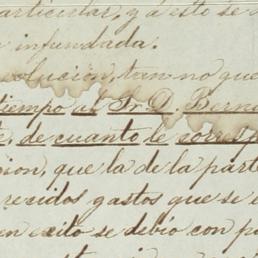 articular, y á esto se
infundada.
olucion, tan no que
tiempo al Sr. D. Berna
de cuanto le corresp
ion, que la de la parte
gastos que se
en exito se debio con